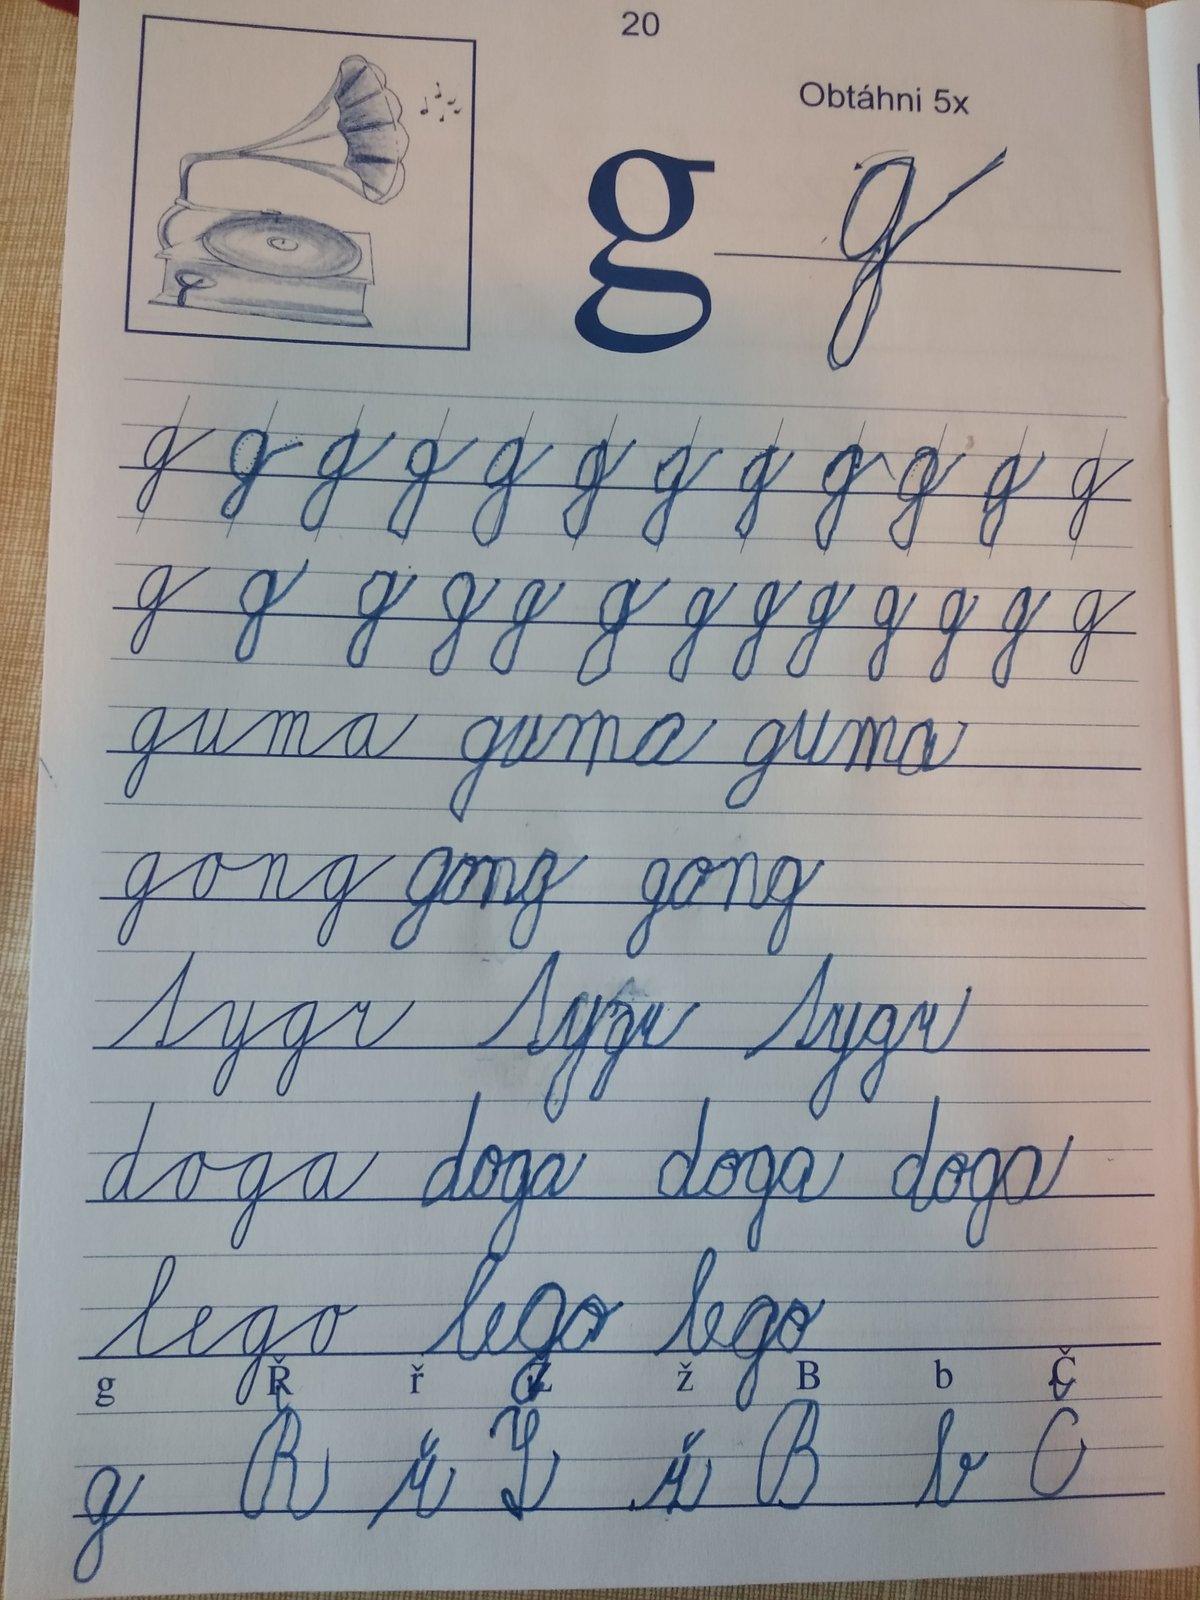 20
Obtáhni 5x
g g
g g g g g g g g g g g g
g g g g g g g g g g g g g
guma guma guma
gong gong gong
tygr tygr tygr
doga doga doga doga
lego lego lego
g Ř ř Ž ž B b Č
g Ř ř Ž ž B b Č